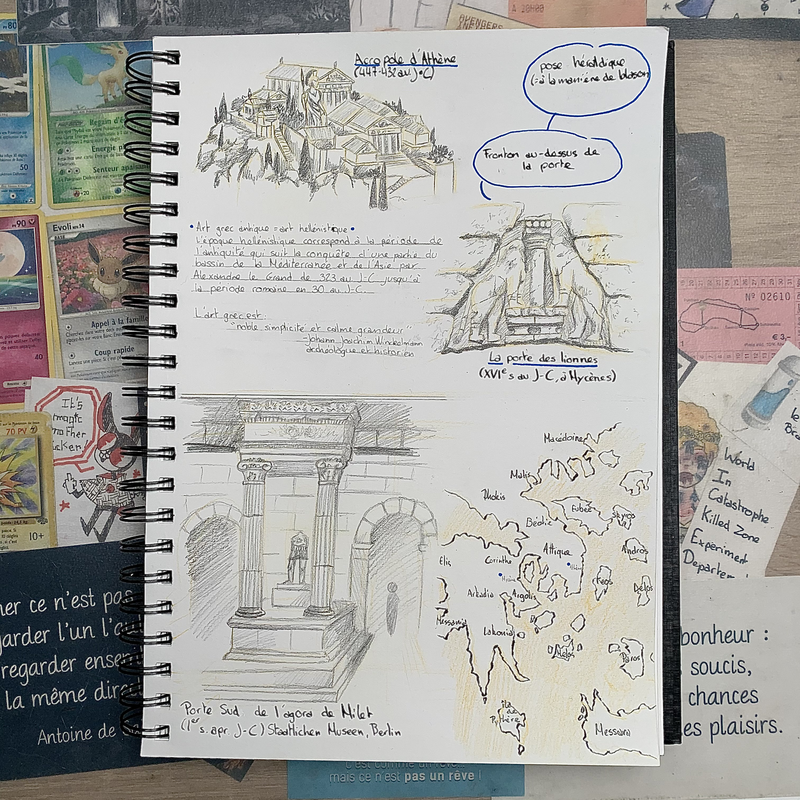 Acropole d'Athène
(447-432 av J-C)
pose héraldique
(=à la manière de blason)
Fronton au-dessus de
la porte
• Art grec antique = art hellénistique •
L'époque hellénistique correspond à la période de
l'antiquité qui suit la conquête d'une partie du
bassin de la Méditerranée et de l'Asie par
Alexandre le Grand de 323 av J-C jusqu'à
la période romaine en 30 av J-C.
L'art grec est...
"noble simplicité et calme grandeur"
-Johann Joachim Winckelmann
archéologue et historien
La porte des lionnes
(XVIe s av J-C, à Mycènes)
Macédoine
Malis
Phokis
Eubée
Skyros
Béotie
Attique
Andros
Elis
Corinthe
Keos
Délos
Arkadia
Argolis
Messania
Lakonia
Mélos
Paros
Île
de
Kythère
Messara
Porte Sud de l'agora de Milet
(Ier s. apr J-C) Staatlichen Museen, Berlin
80
Énergie
Senteur apaisante
50
20
90
Évoli
Appel à la famille
Coup rapide
40
It's
magic
70 PV
10+
Nº 02610
€ 3,-
World
In
Catastrophe
Killed Zone
Experiment
Departement
mer ce n'est pas
garder l'un l'au
regarder ensem
la même dire
Antoine de
bonheur :
soucis,
chances
es plaisirs.
C'est comme un rêve
mais ce n'est pas un rêve !